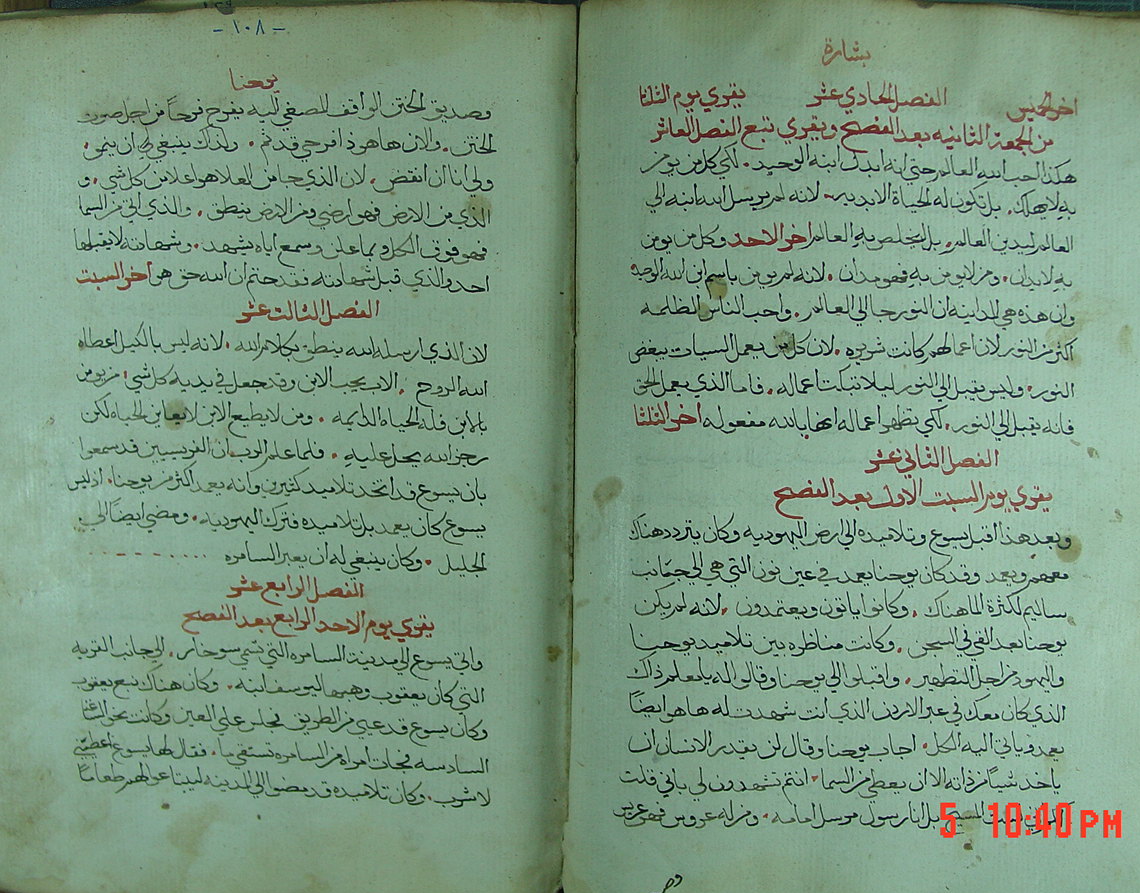 بشارة
اخر الخميس الفصل الحادي عشر يقري يوم الثلثا
من الجمعة الثانيه بعد الفصح ويقري تبع الفصل العاشر
هكذا احب الله العالم حتى انه ابدل ابنه الوحيد. لكي كل من يومن
به لا يهلك. بل تكون له الحياة الابديه. لانه لم يرسل الله ابنه الي
العالم ليدين العالم. بل ليخلص به العالم اخر الاحد وكل من يومن
به لا يدان. ومن لا يومن به فهو مدان. لانه لم يومن باسم ابن الله الوحيد
وان هذه هي المداينه ان النور جا الي العالم. واحب الناس الظلمه
اكثر من النور لان اعمالهم كانت شريره. لان كل من يعمل السيات يبغض
النور. وليس يقبل الي النور ليلا تبكت اعماله. فاما الذي يعمل الحق
فانه يقبل الي النور. لكي تظهر اعماله انها بالله مفعوله اخر الثلثا
الفصل الثاني عشر
يقري يوم السبت الاول بعد الفصح
وبعد هذا اقبل يسوع وتلاميذه الي ارض اليهوديه وكان يتردد هناك
معهم ويعمد وقد كان يوحنا يعمد في عين نون التي هي الي جانب
ساليم لكثرة الما هناك. وكانوا ياتون ويعتمدون. لانه لم يكن
يوحنا بعد القي في السجن. وكانت مناظره بين تلاميذ يوحنا
واليهود من اجل التطهير. واقبلوا الي يوحنا وقالوا له يا معلم ذاك
الذي كان معك في عبر الاردن الذي انت شهدت له ها هو ايضاً
يعمد وياتي اليه الكل. اجاب يوحنا وقال لن يقدر الانسان ان
ياخد شياً من ذاته الا ان يعطي من السما. انتم تشهدون لي باني قلت
لست المسيح بل انا رسول مرسل امامه. ومن له عروس فهو عريس
5 10:40 PM
- ١٠٨ -
يوحنا
وصديق الختن الواقف المصغي اليه يفرح فرحاً من اجل صوت
الختن. والان ها هوذا فرحي قد تم. ولذلك ينبغي لي ان ينمي
ولي انا ان انقص. لان الذي جا من العلا هو اعلا من كل شي. و
الذي من الارض فهو ارضي ومن الارض ينطق. والذي اتي من السما
فهو فوق الكل وبما عاين وسمع اياه يشهد. وشهادته لا يقبلها
احد والذي قبل شهادته فقد ختم ان الله حق هو اخر السبت
الفصل الثالث عشر
لان الذي ارسله الله ينطق بكلام الله. لانه ليس بالكيل اعطاه
الله الروح. الاب يحب الابن وقد جعل في يديه كل شي. من يومن
بالابن فله الحياه الدايمه. ومن لا يطيع الابن لا يعاين الحياه لكن
رجز الله يحل عليه. فلما علم الرب ان الفريسيين قد سمعوا
بان يسوع قد اتخد تلاميد كثيرين وانه يعمد اكثر من يوحنا. اذ ليس
يسوع كان يعمد بل تلاميذه فترك اليهوديه. ومضي ايضاً الي
الجليل. وكان ينبغي له ان يعبر السامره
الفصل الرابع عشر
يقري يوم الاحد الرابع بعد الفصح
واتي يسوع الي مدينة السامره التي تسمي سوخار. الي جانب القريه
التي كان يعقوب وهبها ليوسف ابنه. وكان هناك نبع يعقوب
وكان يسوع قد عيي من الطريق فجلس علي العين وكانت نحو الساعة
السادسه فجات امراه من السامره تستقي ما. فقال لها يسوع اعطيني
لاشرب. وكان تلاميذه قد مضوا الي المدينه ليبتاعوا لهم طعاماً